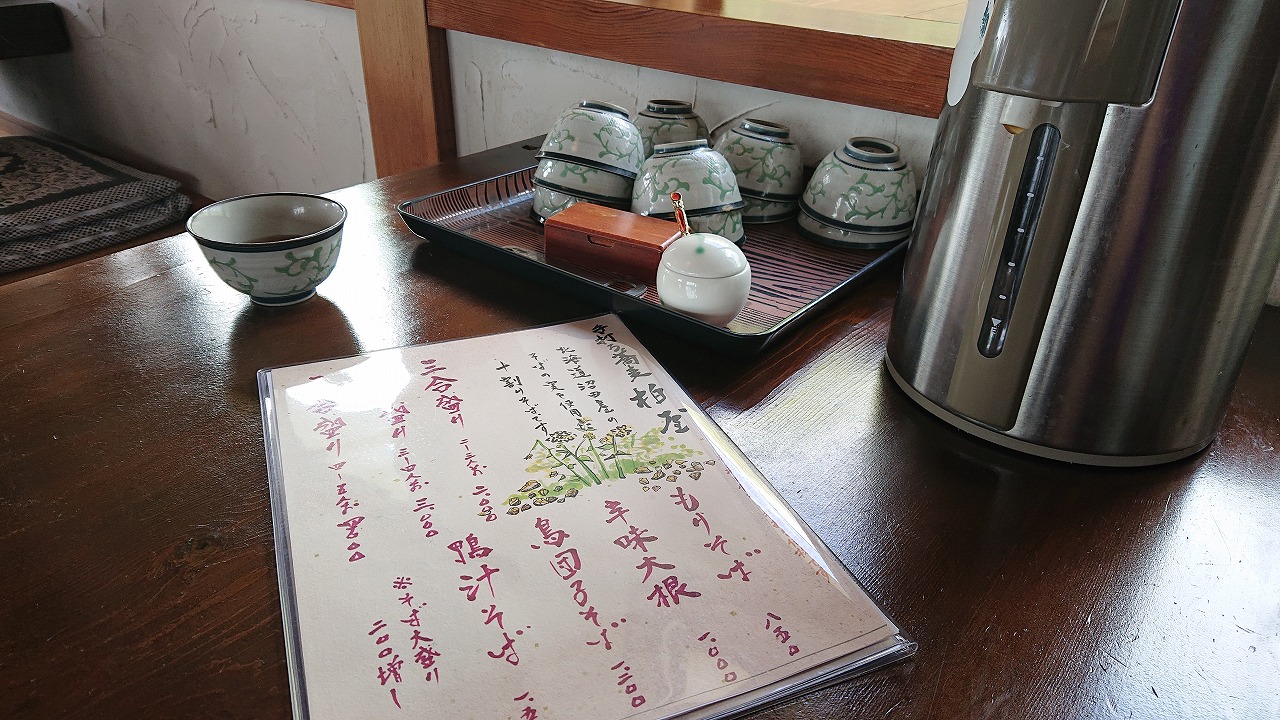 手打ち蕎麦 柏屋
北海道沼田産の
そばの実を使用した
十割りそばです
もりそば 八五〇
辛味大根 一、〇〇〇
鳥団子そば 一、二〇〇
鴨汁そば 一、五
三合盛り 二〜三人前 二、六〇〇
盛り 三〜四人前 三、
合盛り 四〜五人前
※そば大盛り
二〇〇増し